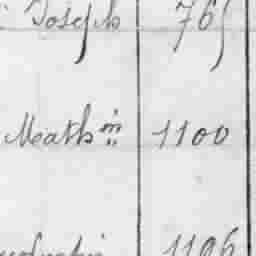 Joseph 765
Math in 1100
1106